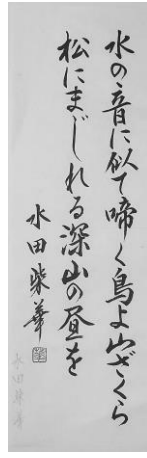 水の音に似て啼く鳥よ山ざくら
松にまじれる深山の昼を
水田柴華
水田柴華